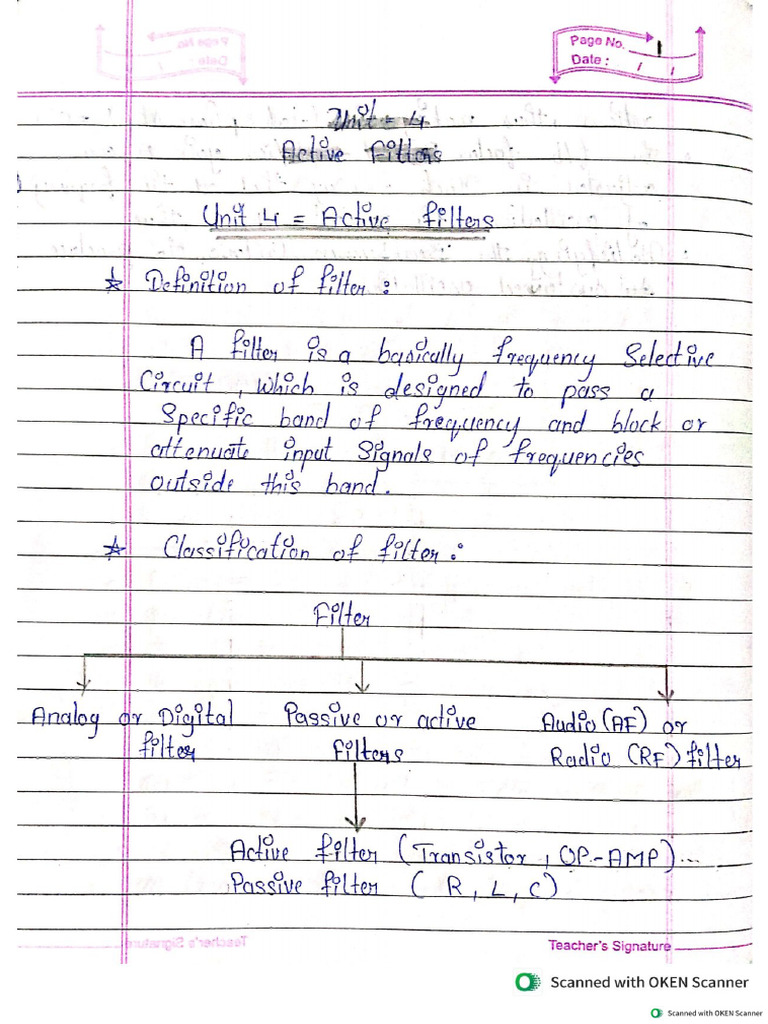 Page No. 1
Date : / /
Unit = 4
Active Filters
Unit 4 = Active filters
☆ Definition of filter :
A filter is a basically frequency Selective
Circuit , which is designed to pass a
Specific band of frequency and block or
attenuate input signals of frequencies
outside this band.
☆ Classification of filter :
Filter
Analog or Digital Passive or active Audio (AF) or
filter filters Radio (RF) filter
Active filter (Transistor , OP-AMP)...
Passive filter ( R , L , C )
Teacher's Signature
Scanned with OKEN Scanner
Scanned with OKEN Scanner